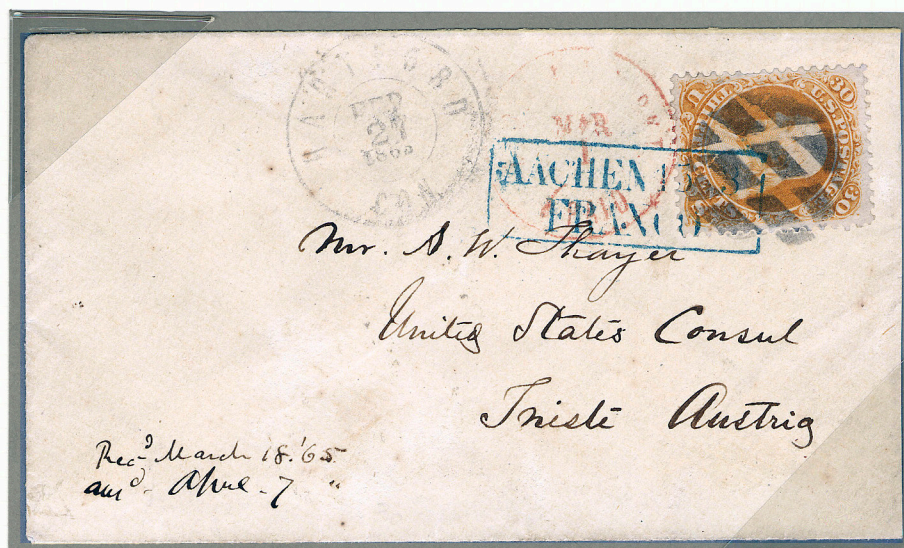 HARTFORD
FEB
27
186
MAR
PAID
AACHEN 15 3
FRANCO
30 U.S. POSTAGE 30
Mr. A. W. Thayer
United States Consul
Trieste Austria
Recd March 18. '65.
ansd. April. 7 "